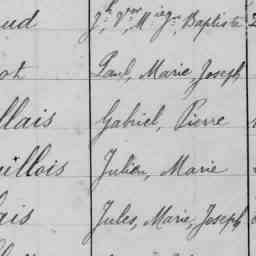 ud Baptiste
ot Paul, Marie, Joseph
llais Gabriel, Pierre
illois Julien, Marie
ais Jules, Marie, Joseph